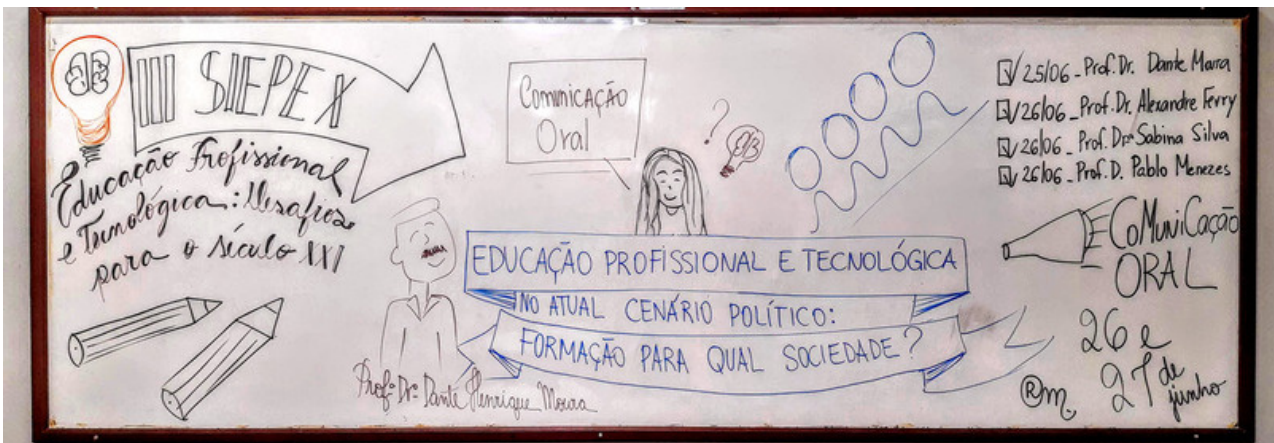 III SIEPEX
Educação Profissional
e Tecnológica: Desafios
para o século XXI
Comunicação
Oral
?
EDUCAÇÃO PROFISSIONAL E TECNOLÓGICA
NO ATUAL CENÁRIO POLÍTICO:
FORMAÇÃO PARA QUAL SOCIEDADE?
Profº Drº Dante Henrique Moura
25/06 - Prof. Dr. Dante Moura
26/06 - Prof. Dr. Alexandre Ferry
26/06 - Prof. Drª Sabina Silva
26/06 - Prof. D. Pablo Menezes
CoMuniCação
ORAL
26 e
27 de
junho